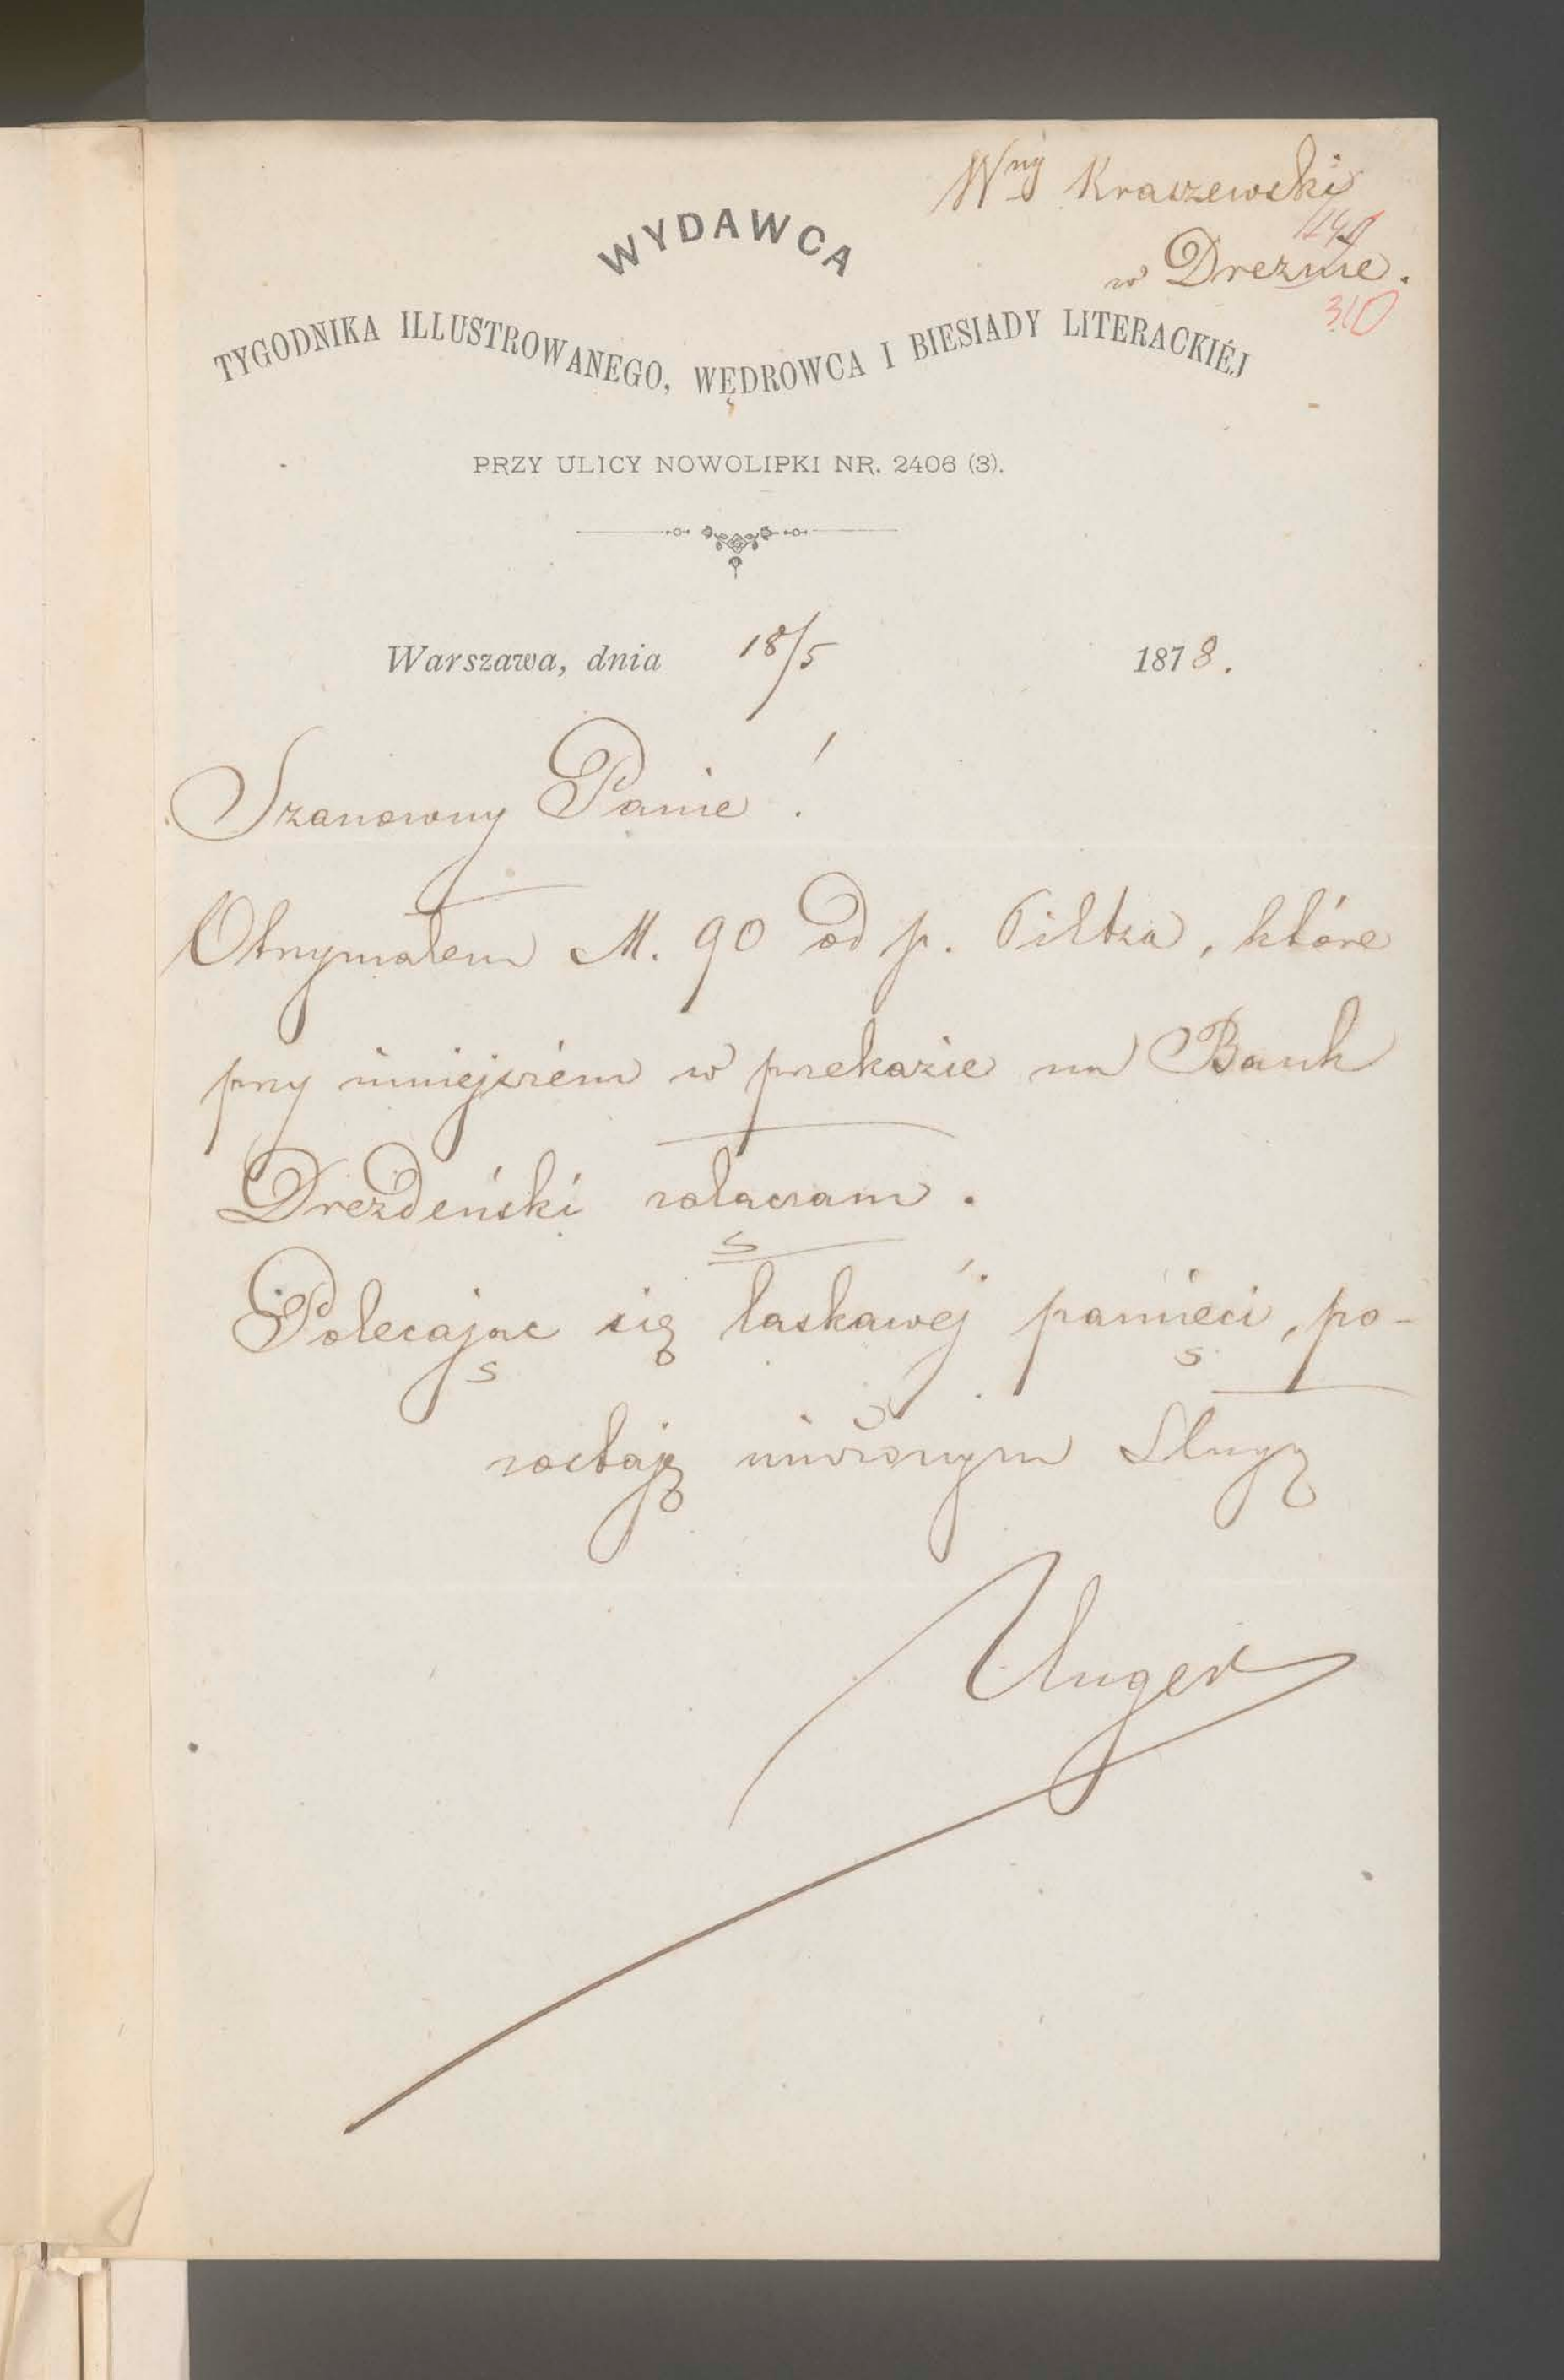 Wny Kraszewski
w Dreznie.
310
WYDAWCA
TYGODNIKA ILLUSTROWANEGO, WĘDROWCA I BIESIADY LITERACKIÉJ
PRZY ULICY NOWOLIPKI NR. 2406 (3).
Warszawa, dnia 18/5 1878.
Szanowny Panie!
Otrzymałem M. 90 od p. Piltza, które
przy niniejszém w przekazie na Bank
Drezdeński załączam.
Polecając się łaskawéj pamięci, po-
zostaję uniżonym Sługą
Unger